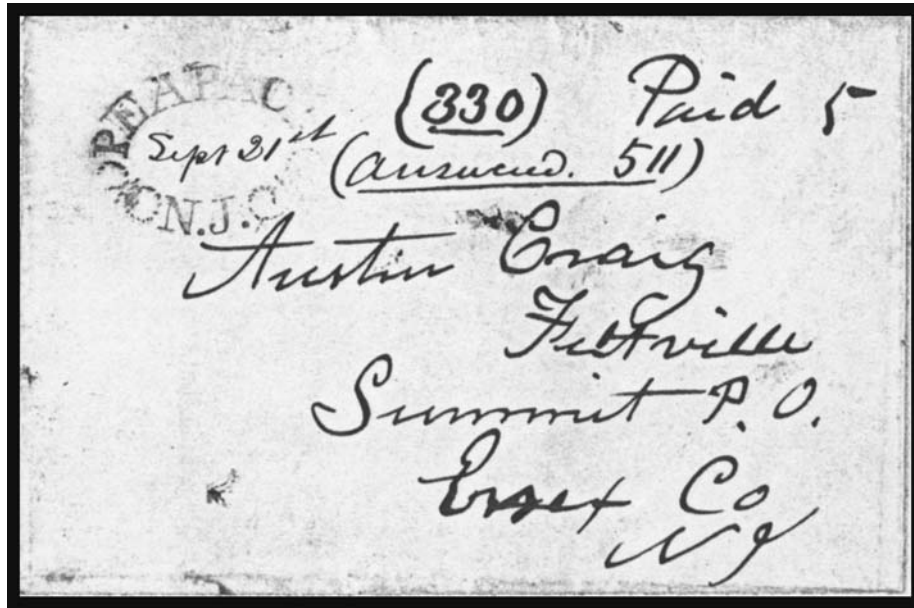 PEAPAC
Sept 21st
N.J.
(330) Paid 5
(answered. 511)
Austin Craig
Feltville
Summit P. O.
Essex Co
N J